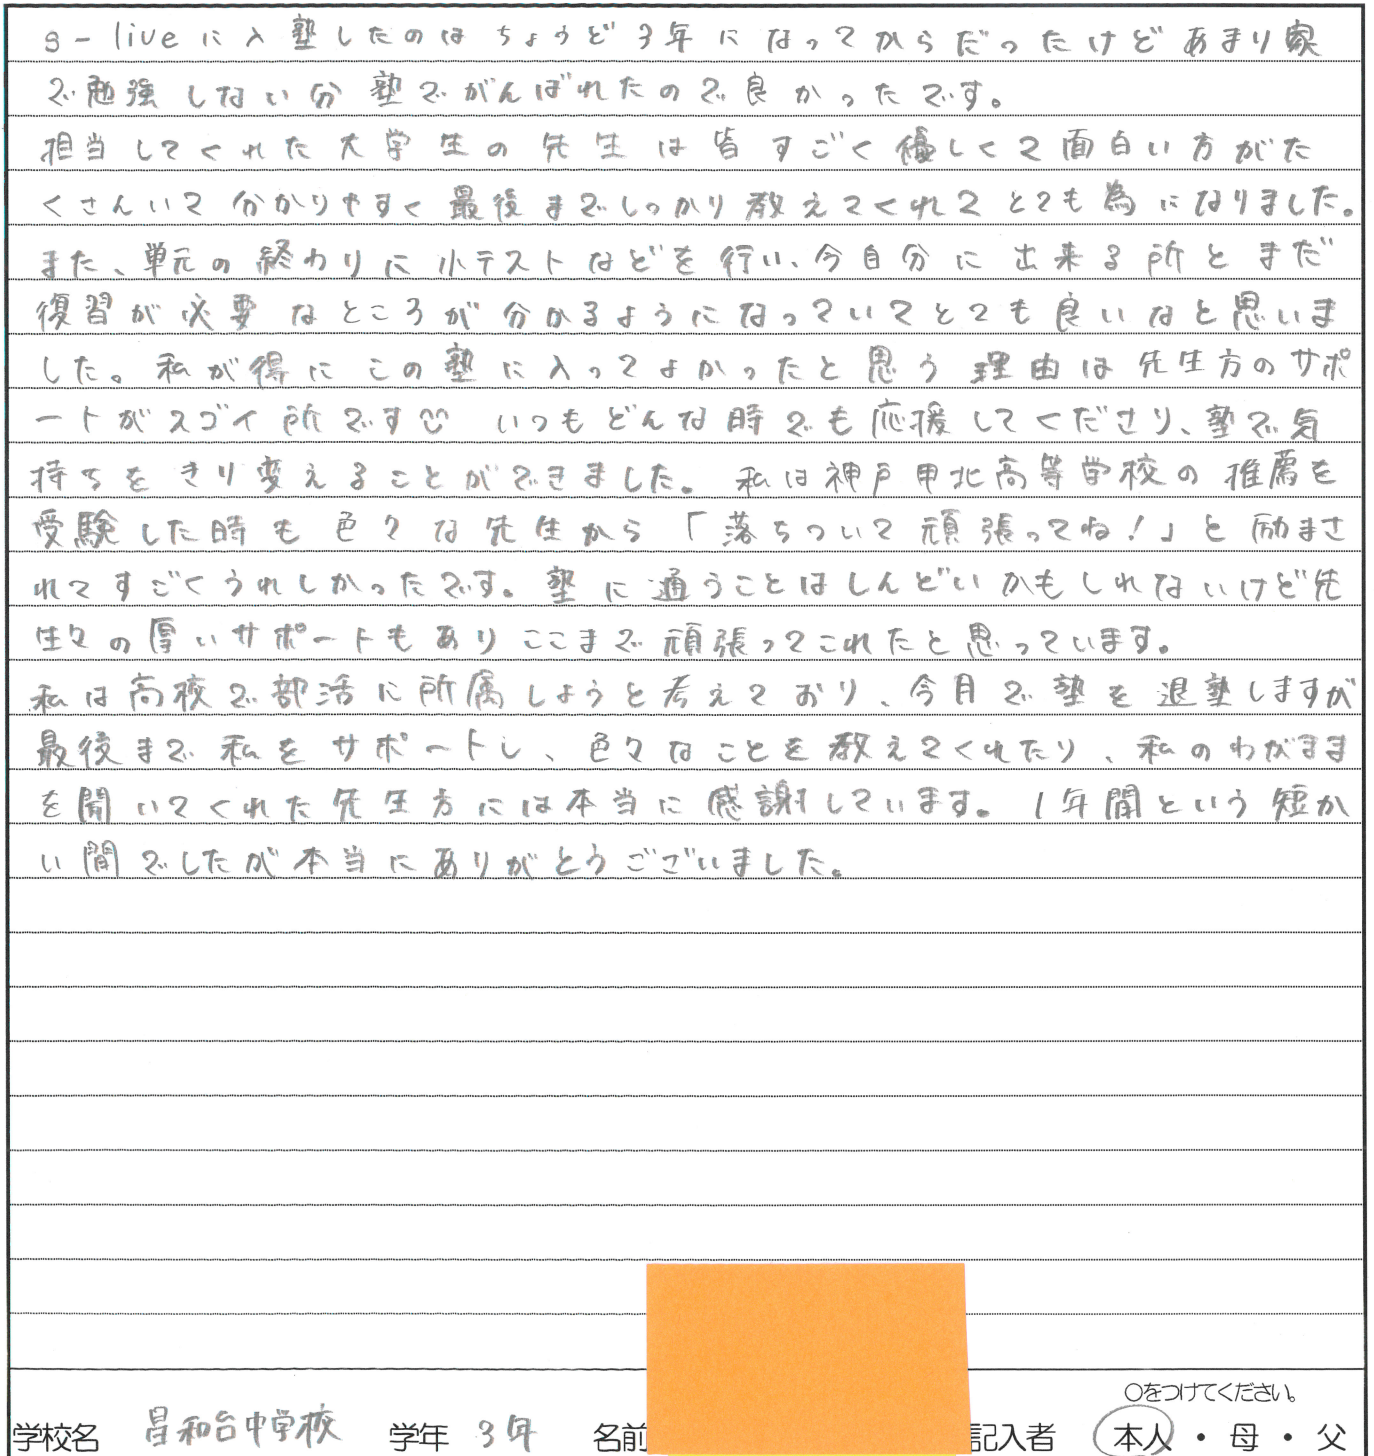 s-liveに入塾したのはちょうど3年になってからだったけどあまり家
で勉強しない分塾でがんばれたので良かったです。
担当してくれた大学生の先生は皆すごく優しくて面白い方がた
くさんいて分かりやすく最後までしっかり教えてくれてとても為になりました。
また、単元の終わりに小テストなどを行い、今自分に出来る所とまだ
復習が必要なところが分かるようになっていてとても良いなと思いま
した。私が得にこの塾に入ってよかったと思う理由は先生方のサポ
ートがスゴイ所です いつもどんな時でも応援してくださり、塾で気
持ちをきり変えることができました。私は神戸甲北高等学校の推薦を
受験した時も色々な先生から「落ちついて頑張ってね!」と励まさ
れてすごくうれしかったです。塾に通うことはしんどいかもしれないけど先
生々の厚いサポートもありここまで頑張ってこれたと思っています。
私は高校で部活に所属しようと考えており、今月で塾を退塾しますが
最後まで私をサポートし、色々なことを教えてくれたり、私のわがまま
を聞いてくれた先生方には本当に感謝しています。1年間という短か
い間でしたが本当にありがとうございました。
○をつけてください。
学校名 昌和台中学校 学年 3年 名前 記入者 本人・母・父